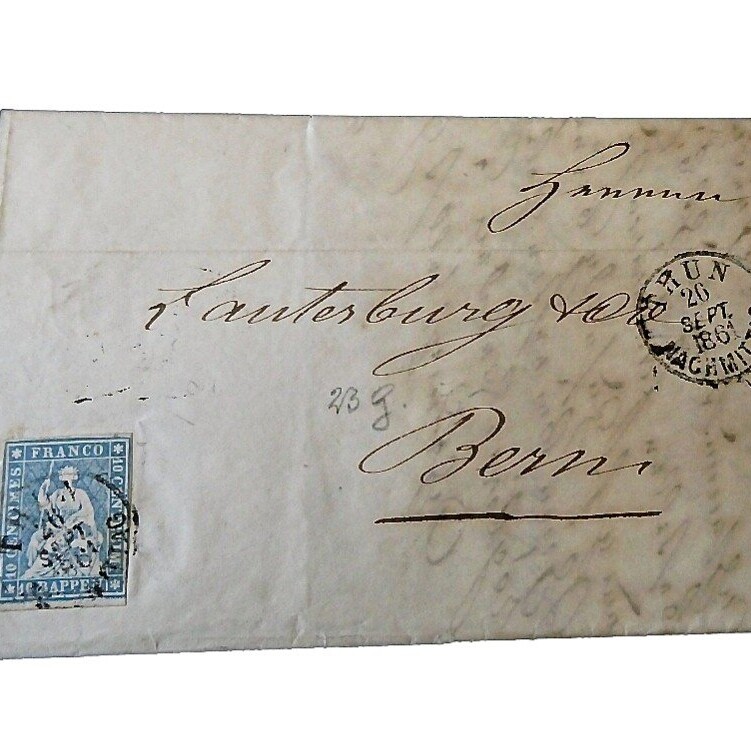 Herren
Lauterburg & Cie
Bern
23 g.
THUN
26
SEPT.
1861
NACHMITT
FRANCO
10 CENT
10 RAPPEN
SEPT